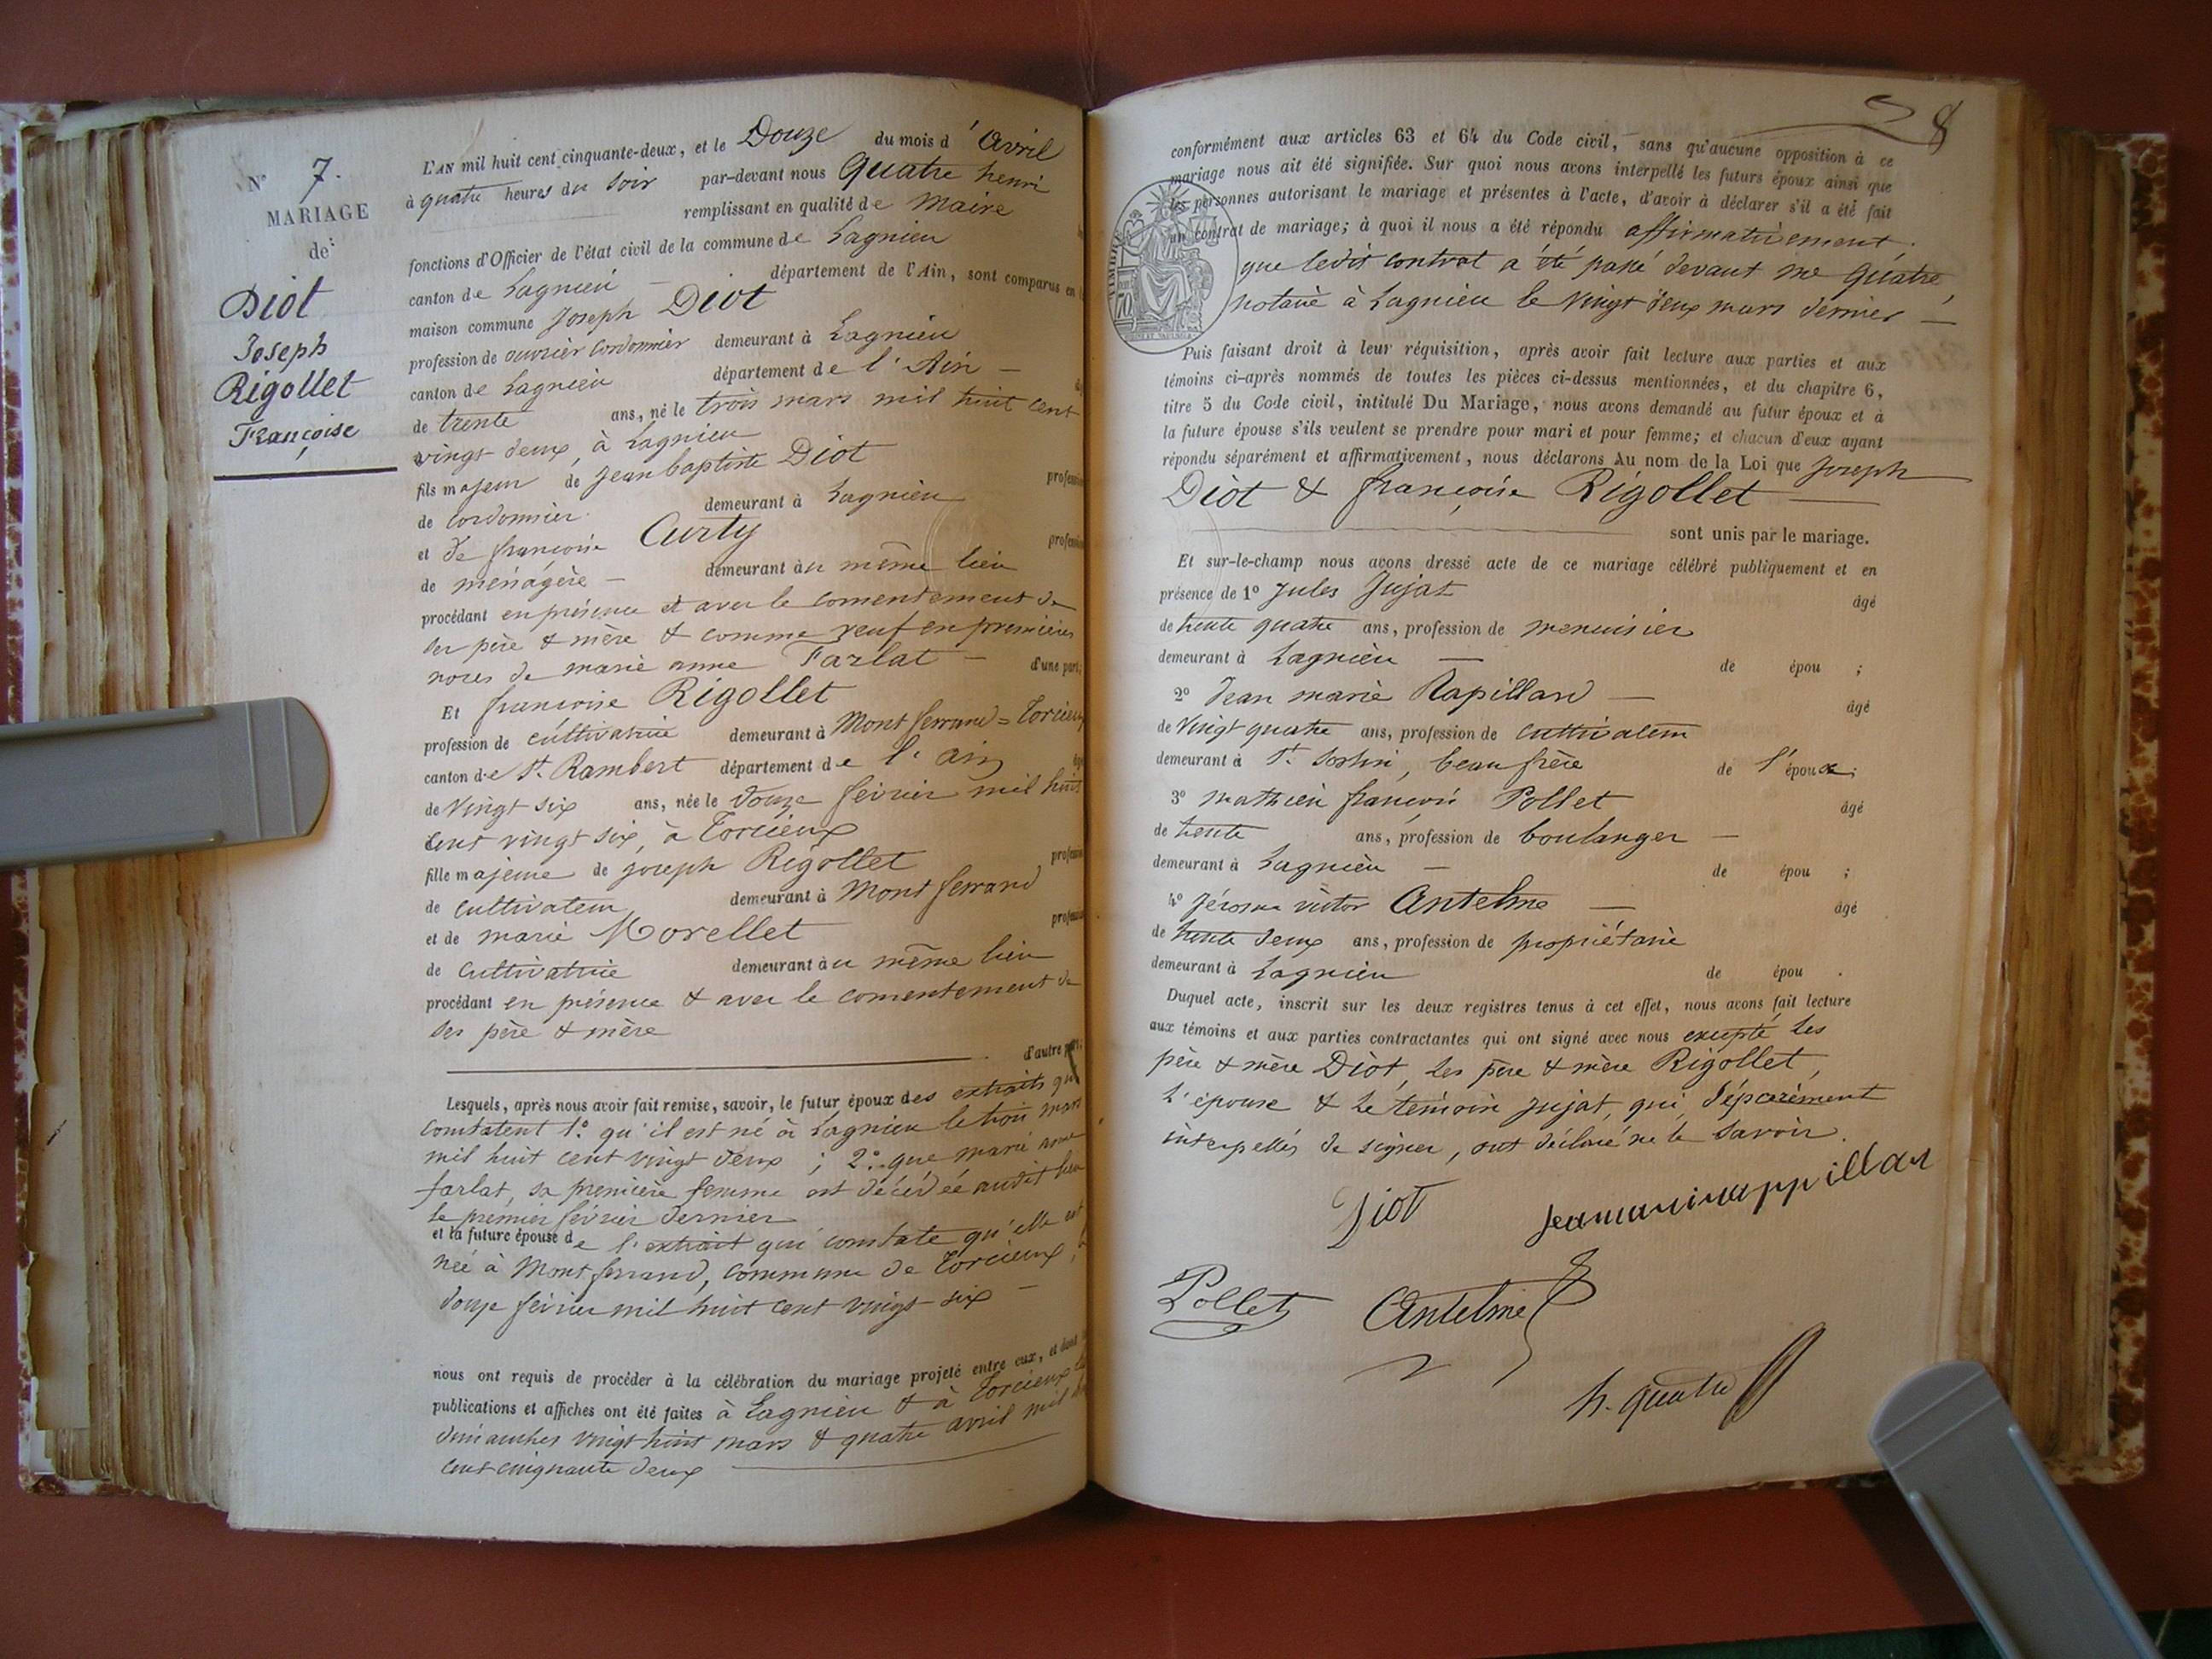 N° 7.
MARIAGE
de
Diot
Joseph
Rigollet
Françoise
L'AN mil huit cent cinquante-deux, et le Douze du mois d'Avril
à quatre heures du soir par-devant nous Quatre henri
remplissant en qualité de Maire
fonctions d'Officier de l'état civil de la commune de Lagnieu
canton de Lagnieu département de l'Ain, sont comparus en
maison commune Joseph Diot
profession de ouvrier cordonnier demeurant à Lagnieu
canton de Lagnieu département de l'Ain
de trente ans, né le trois mars mil huit cent
vingt deux, à Lagnieu
fils majeur de Jean baptiste Diot profession
de cordonnier demeurant à Lagnieu
et de françoise Curty profession
de ménagère demeurant au même lieu
procédant en présence et avec le consentement de
ses père & mère & comme veuf en premières
noces de marie anne Farlat d'une part;
Et françoise Rigollet
profession de cultivatrice demeurant à Mont ferrand = Torcieux
canton de St. Rambert département de l'ain
de Vingt six ans, née le douze février mil huit
cent vingt six, à Torcieux
fille majeure de joseph Rigollet profession
de cultivateur demeurant à Mont ferrand
et de marie Morellet profession
de cultivatrice demeurant au même lieu
procédant en présence & avec le consentement de
ses père & mère
d'autre part;
Lesquels, après nous avoir fait remise, savoir, le futur époux des extraits qui
constatent 1° qu'il est né à Lagnieu le trois mars
mil huit cent vingt deux; 2° que marie anne
farlat, sa première femme est décédée audit lieu
le premier février dernier
et la future épouse de l'extrait qui constate qu'elle est
née à Mont ferrand, commune de Torcieux,
douze février mil huit cent vingt six
nous ont requis de procéder à la célébration du mariage projeté entre eux, et dont
publications et affiches ont été faites à Lagnieu & à Torcieux
dimanches vingt huit mars & quatre avril mil
cent cinquante deux
28
conformément aux articles 63 et 64 du Code civil, sans qu'aucune opposition à ce
mariage nous ait été signifiée. Sur quoi nous avons interpellé les futurs époux ainsi que
les personnes autorisant le mariage et présentes à l'acte, d'avoir à déclarer s'il a été fait
un contrat de mariage; à quoi il nous a été répondu affirmativement.
que ledit contrat a été passé devant me Quatre,
notaire à Lagnieu le vingt deux mars dernier
TIMBRE
70
Puis faisant droit à leur réquisition, après avoir fait lecture aux parties et aux
témoins ci-après nommés de toutes les pièces ci-dessus mentionnées, et du chapitre 6,
titre 5 du Code civil, intitulé Du Mariage, nous avons demandé au futur époux et à
la future épouse s'ils veulent se prendre pour mari et pour femme; et chacun d'eux ayant
répondu séparément et affirmativement, nous déclarons Au nom de la Loi que Joseph
Diot & françoise Rigollet
sont unis par le mariage.
Et sur-le-champ nous avons dressé acte de ce mariage célébré publiquement et en
présence de 1° Jules Jujat âgé
de trente quatre ans, profession de menuisier
demeurant à Lagnieu de épou ;
2° Jean marie Rapillard âgé
de Vingt quatre ans, profession de cultivateur
demeurant à St. Sorlin, beau frère de l'époux;
3° mathieu françois Pollet âgé
de trente ans, profession de boulanger
demeurant à Lagnieu de épou ;
4° Jérome victor Antelme âgé
de trente deux ans, profession de propriétaire
demeurant à Lagnieu de épou .
Duquel acte, inscrit sur les deux registres tenus à cet effet, nous avons fait lecture
aux témoins et aux parties contractantes qui ont signé avec nous excepté les
père & mère Diot, les père & mère Rigollet,
l'épouse & le témoin Jujat, qui, séparément
interpellés de signer, ont déclaré ne le savoir.
Diot Jeanmarirappillar
Pollet Antelme
h. quatre